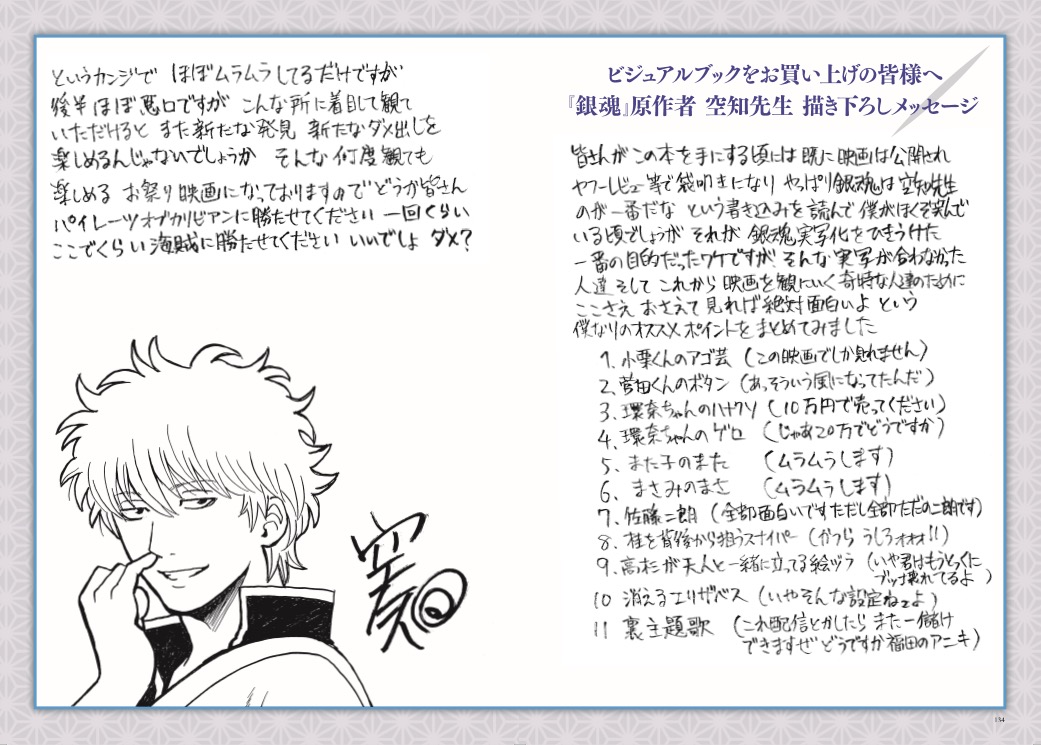 ビジュアルブックをお買い上げの皆様へ
『銀魂』原作者 空知先生 描き下ろしメッセージ
皆さんがこの本を手にする頃には既に映画は公開され
ヤフーレビュー等で袋叩きになり やっぱり銀魂は空知先生
のが一番だな という書き込みを読んで僕がほくそ笑んで
いる頃でしょうが それが 銀魂実写化をひきうけた
一番の目的だったワケですが そんな実写が合わなかった
人達 そして これから映画を観にいく奇特な人達のために
ここさえ おさえて見れば絶対面白いよ という
僕なりのオススメポイントをまとめてみました
1、小栗くんのアゴ芸 (この映画でしか見れません)
2、菅田くんのボタン (あっそういう風になってたんだ)
3、環奈ちゃんのハナクソ (10万円で売ってください)
4、環奈ちゃんのゲロ (じゃあ20万でどうですか)
5、また子のまた (ムラムラします)
6、まさみのまさ (ムラムラします)
7、佐藤二朗 (全部面白いです ただし全部ただの二朗です)
8、桂を背後から狙うスナイパー (かつら うしろォォォ!!)
9、高杉が天人と一緒に立ってる絵ヅラ (いや君はもうとっくに
ブッ壊れてるよ)
10 消えるエリザベス (いやそんな設定ねェよ)
11 裏主題歌 (これ配信とかしたら また一儲け
できますぜ どうですか福田のアニキ)
というカンジで ほぼムラムラしてるだけですが
後半ほぼ悪口ですが こんな所に着目して観て
いただけると また新たな発見 新たなダメ出しを
楽しめるんじゃないでしょうか そんな何度観ても
楽しめる お祭り映画になっておりますので どうか皆さん
パイレーツオブカリビアンに勝たせてください 一回くらい
ここでくらい海賊に勝たせてください いいでしょ ダメ?
空知
134